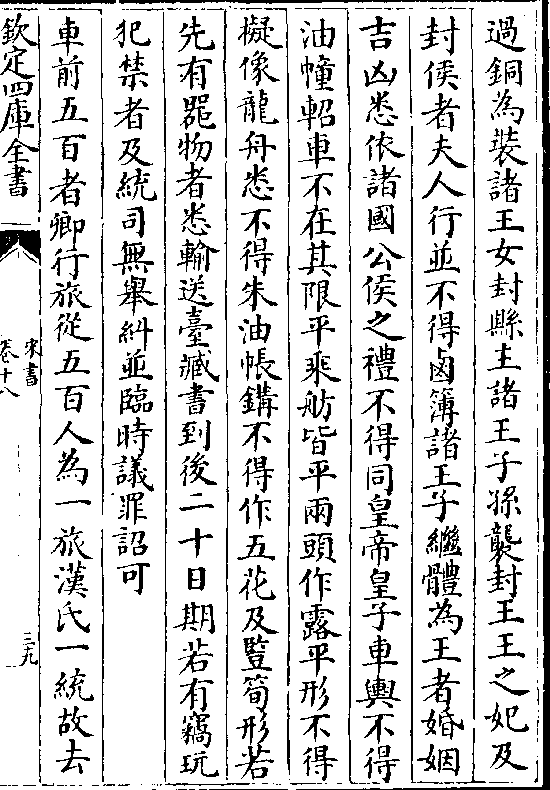 過銅為裝諸王女封縣主諸王子孫襲封王王之妃及
封侯者夫人行並不得鹵簿諸王子繼體為王者婚姻
吉凶悉依諸國公侯之禮不得同皇帝皇子車輿不得
油幢軺車不在其限平乘舫皆平兩頭作露平形不得
擬像龍舟悉不得朱油帳鏡不得作五花及豎筍形若
先有器物者悉輸送臺臧書到後二十日期若有竊玩
犯禁者及統司無舉糾並臨時議罪詔可
車前五百者卿行旅從五百人為一旅漢氏一統故去
欽定四庫全書
宋書
卷十八
三九